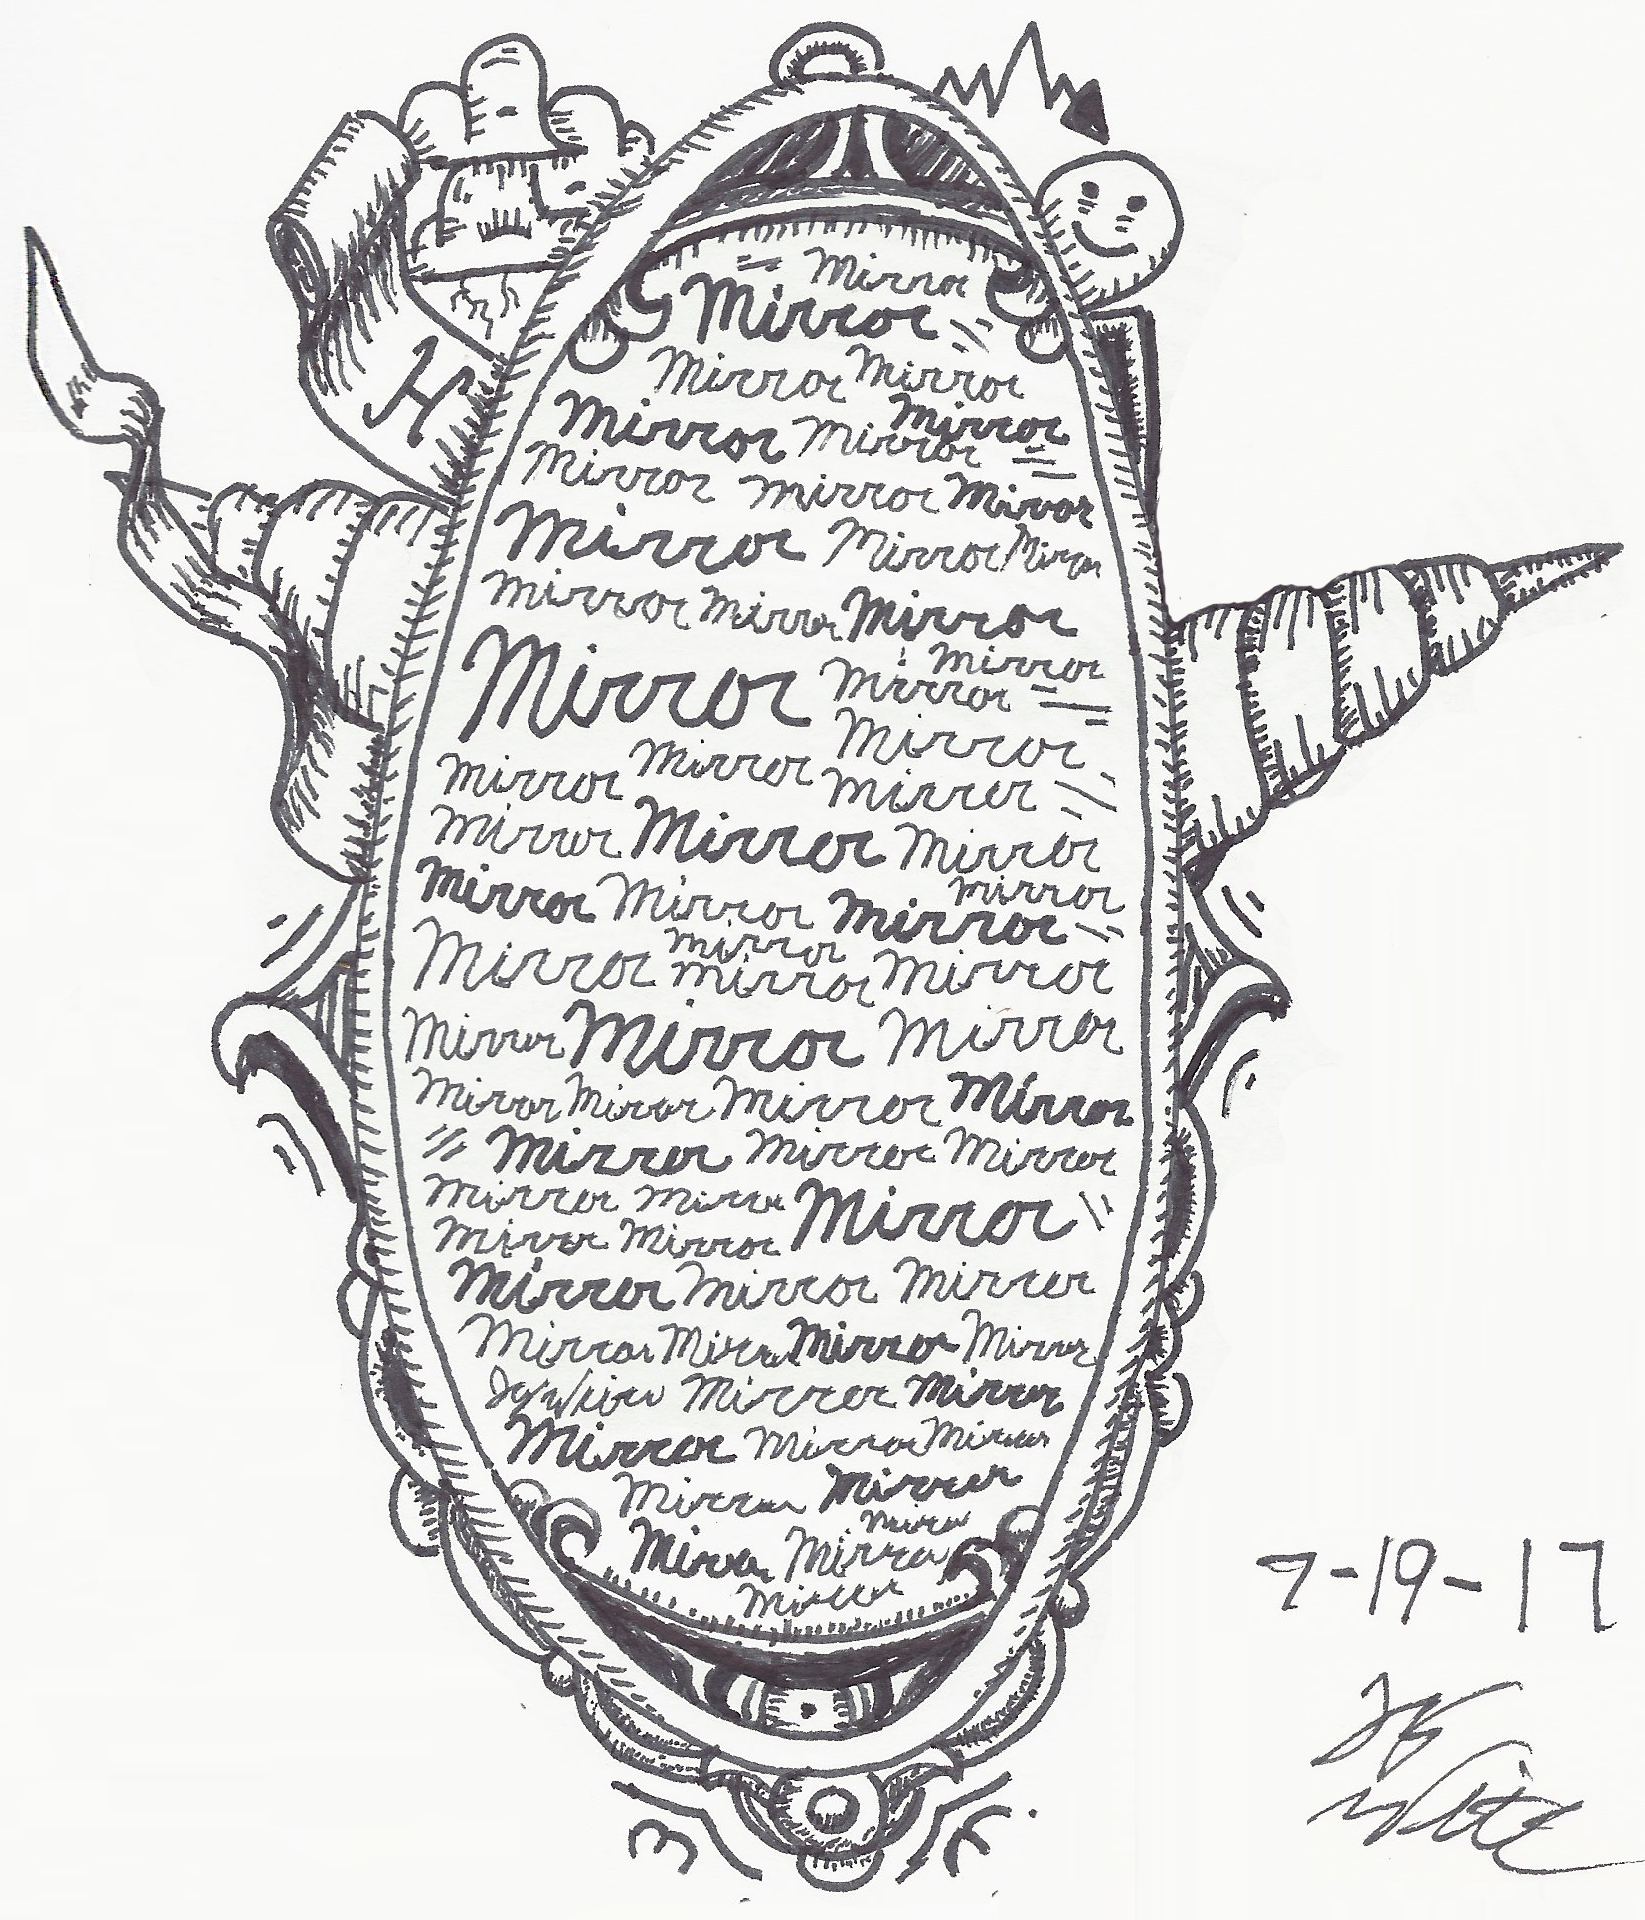 Mirror
Mirror
Mirror Mirror
Mirror Mirror Mirror
Mirror Mirror Mirror
Mirror Mirror Mirror
Mirror Mirror Mirror
Mirror Mirror Mirror
Mirror Mirror Mirror
Mirror
Mirror Mirror Mirror
Mirror Mirror Mirror Mirror
Mirror Mirror Mirror Mirror
Mirror Mirror Mirror
Mirror Mirror Mirror Mirror
Mirror Mirror Mirror
Mirror Mirror Mirror
Mirror Mirror
Mirror Mirror Mirror
Mirror Mirror Mirror Mirror
Mirror Mirror
Mirror Mirror Mirror
Mirror Mirror
Mirror Mirror Mirror
Mirror
H
7-19-17